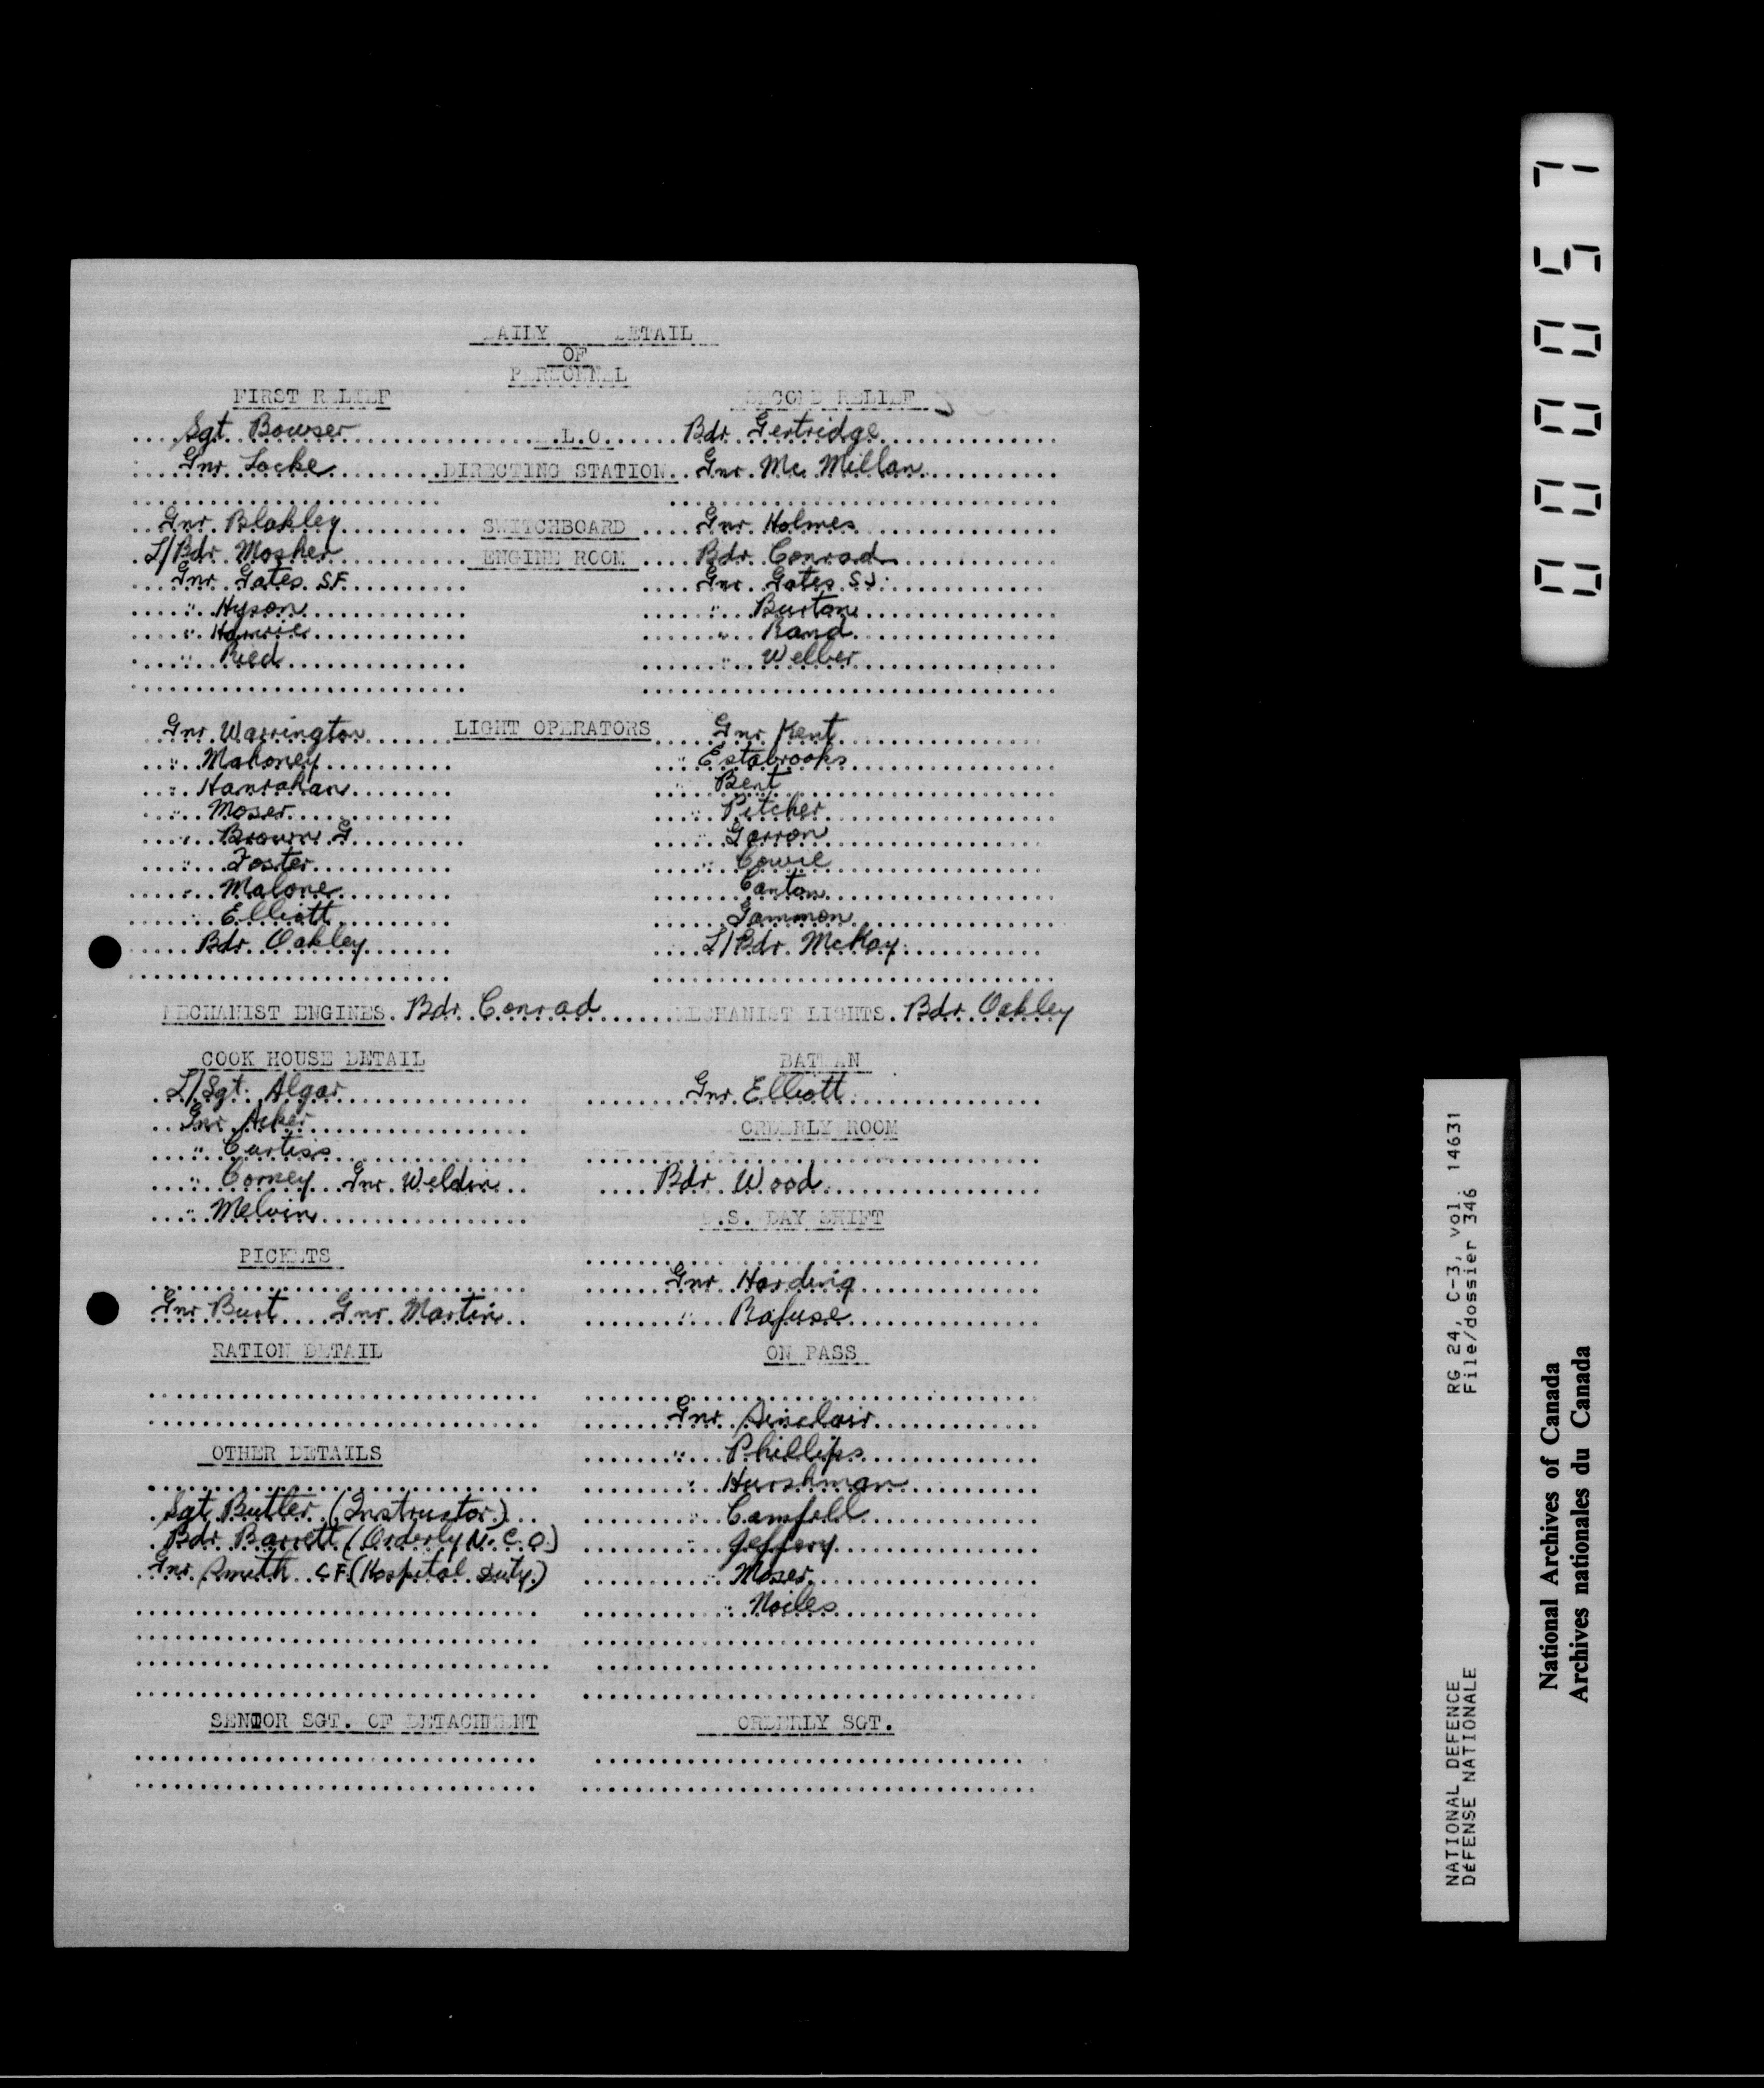 DAILY DETAIL
OF
PERSONNEL
FIRST RELIEF SECOND RELIEF
Sgt. Bowser .L.O. Bdr. Gertridge
Gnr. Locke DIRECTING STATION. Gnr. Mc Millan
Gnr. Blakley SWITCHBOARD Gnr. Holmes
L/Bdr. Mosher ENGINE ROOM Bdr. Conrad
Gnr. Gates. SF. Gnr. Gates SJ.
" Hyson " Burton
" Rand
" Ried " Welber
Gnr. Warrington LIGHT OPERATORS Gnr. Kent
" Mahoney " Estabrooks
" Hanrahan " Bent
" Moser " Pitcher
" Brown G " Garron
" Foster " Cowie
" Malone Canton
" Elliott Gammon
Bdr. Oakley L/Bdr. McKay
MECHANIST ENGINES. Bdr. Conrad MECHANIST LIGHTS. Bdr. Oakley
COOK HOUSE DETAIL BATMAN
L/Sgt. Algar Gnr. Elliott
Gnr. Acker ORDERLY ROOM
" Curtiss
" Corney Gnr. Weldin Bdr. Wood
" Melvin .S. DAY SHIFT
PICKETS
Gnr. Harding
Gnr Burt Gnr. Martin " Rafuse
RATION DETAIL ON PASS
Gnr. Sinclair
OTHER DETAILS " Phillips
" Hurshman
Sgt. Butler (Instructor) " Camfell
Bdr. Barrett (Orderly N.C.O.) " Jeffery
Gnr. Smith C.F. (Hospital Duty.) " Moser
" Noiles
SENIOR SGT. OF DETACHMENT ORDERLY SGT.
0000057
RG 24, C-3, vol. 14631
File/dossier 346
NATIONAL DEFENCE
DÉFENSE NATIONALE
National Archives of Canada
Archives nationales du Canada